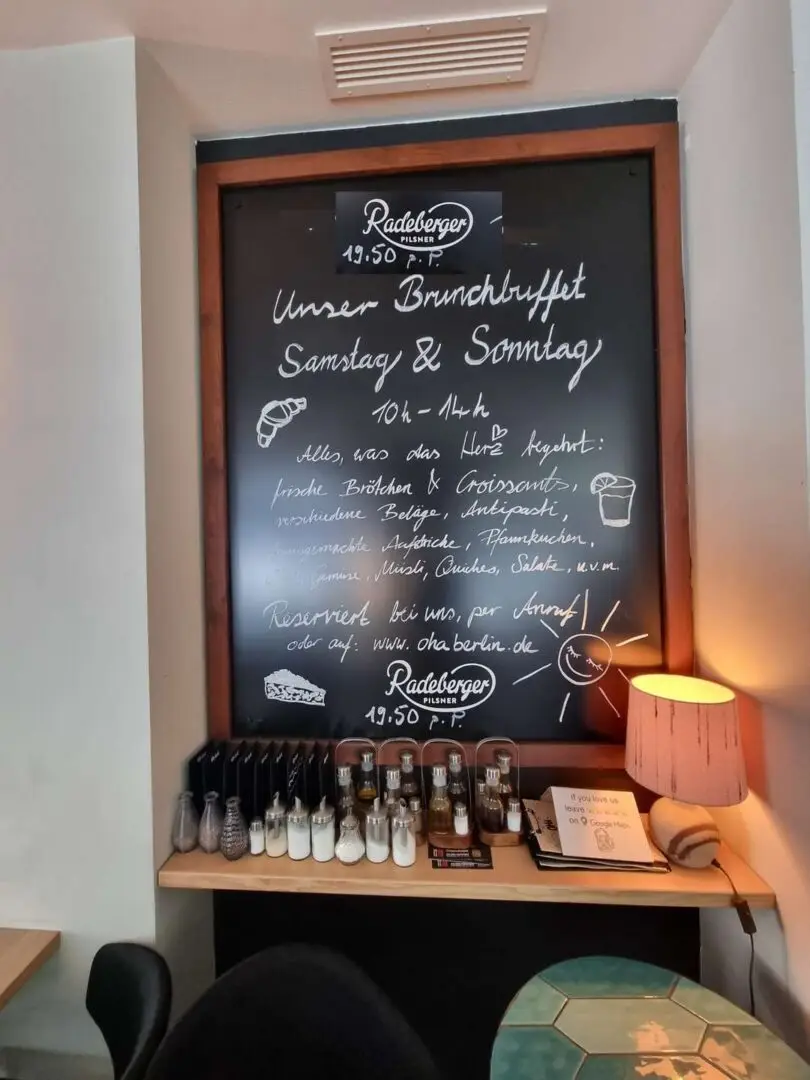 Radeberger
PILSNER
19.50 p. P.
Unser Brunchbuffet
Samstag & Sonntag
10h - 14h
Alles, was das Herz begehrt:
frische Brötchen & Croissants,
verschiedene Beläge, Antipasti,
Aufstriche, Pfannkuchen,
Müsli, Quiches, Salate, u.v.m.
Reserviert bei uns, per Anruf
oder auf: www.ohaberlin.de
Radeberger
PILSNER
19.50 p. P.
If you love us
leave
on Google Maps